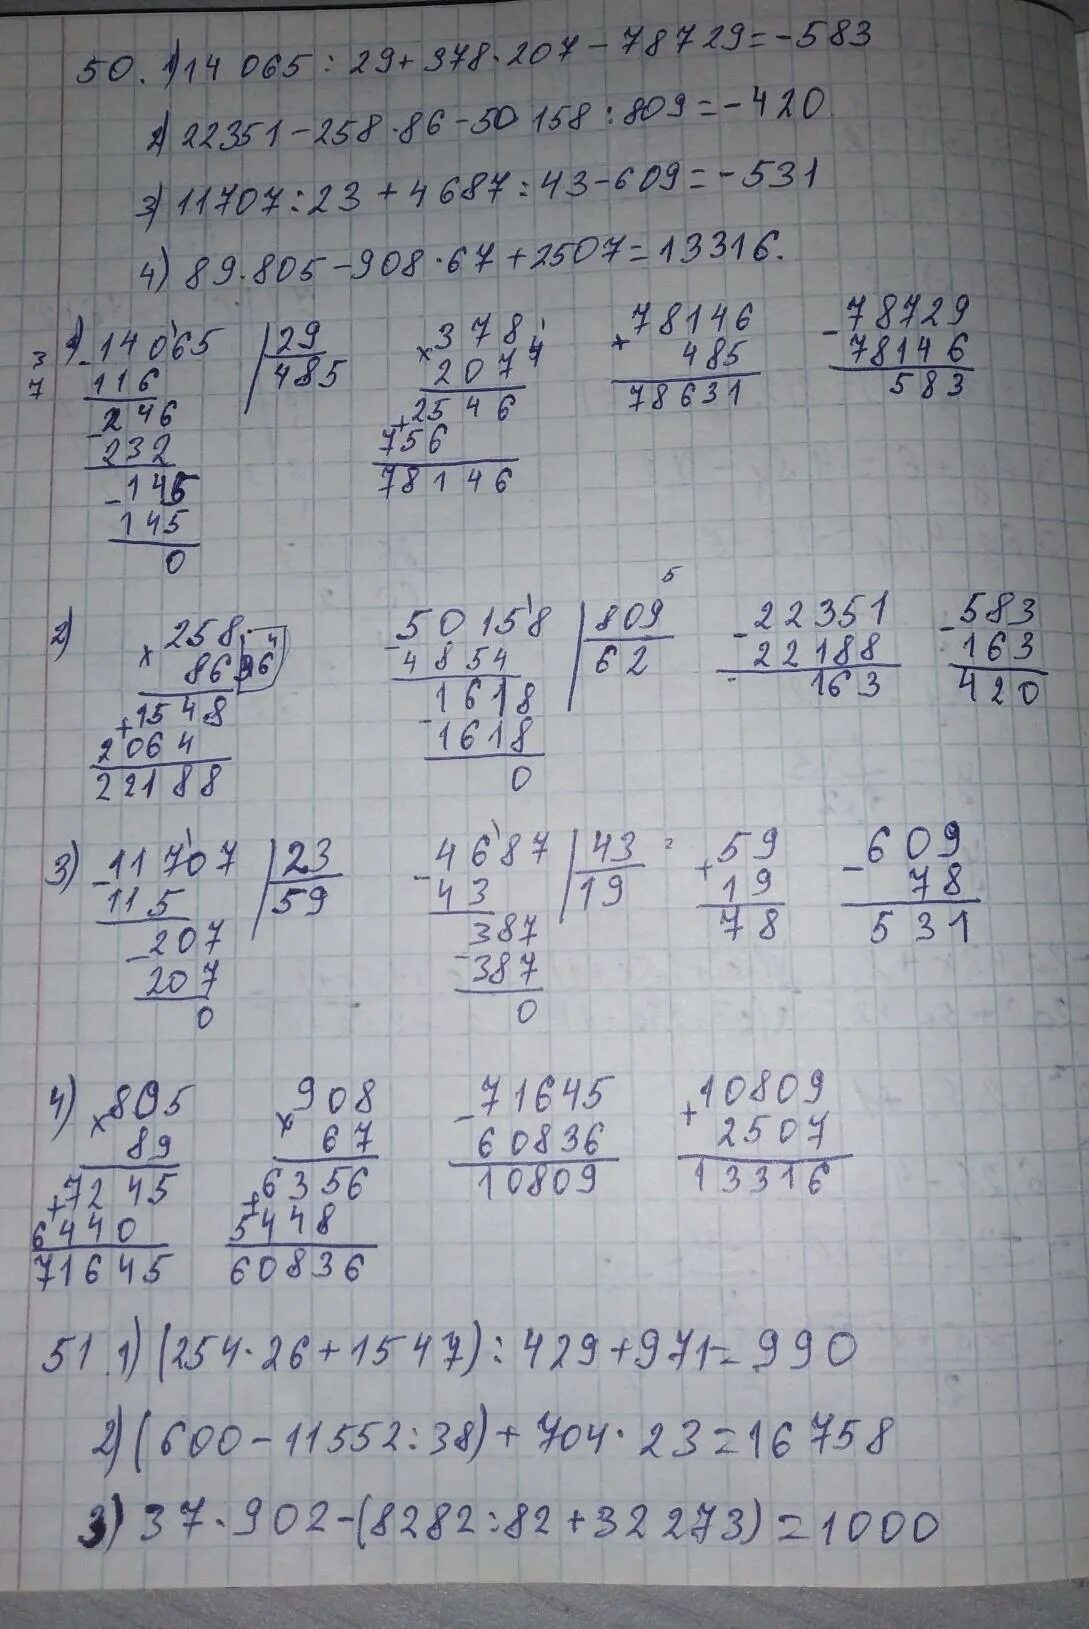 50. 1) 14 065 : 29 + 378 · 207 - 78729 = -583
2) 22351 - 258 · 86 - 50 158 : 809 = -420.
3) 11707 : 23 + 4687 : 43 - 609 = -531
4) 89 · 805 - 908 · 67 + 2507 = 13316.
1) -14065 | 29
485
116
-246
232
-145
145
0
3
7
×378
207
+2546
756
78146
1
4
+78146
485
78631
-78729
78146
583
2)
×258
86
+1548
2064
22188
-50158 | 809
62
4854
-1618
1618
0
5
-22351
22188
163
-583
163
420
3) -11707 | 23
59
115
-207
207
0
-4687 | 43
19
43
-387
387
0
+59
19
78
-609
78
531
4) ×805
89
+7245
6440
71645
×908
67
+6356
5448
60836
-71645
60836
10809
+10809
2507
13316
51. 1) (254 · 26 + 1547) : 429 + 971 = 990
2) (600 - 11552 : 38) + 704 · 23 = 16758
3) 37 · 902 - (8282 : 82 + 32273) = 1000